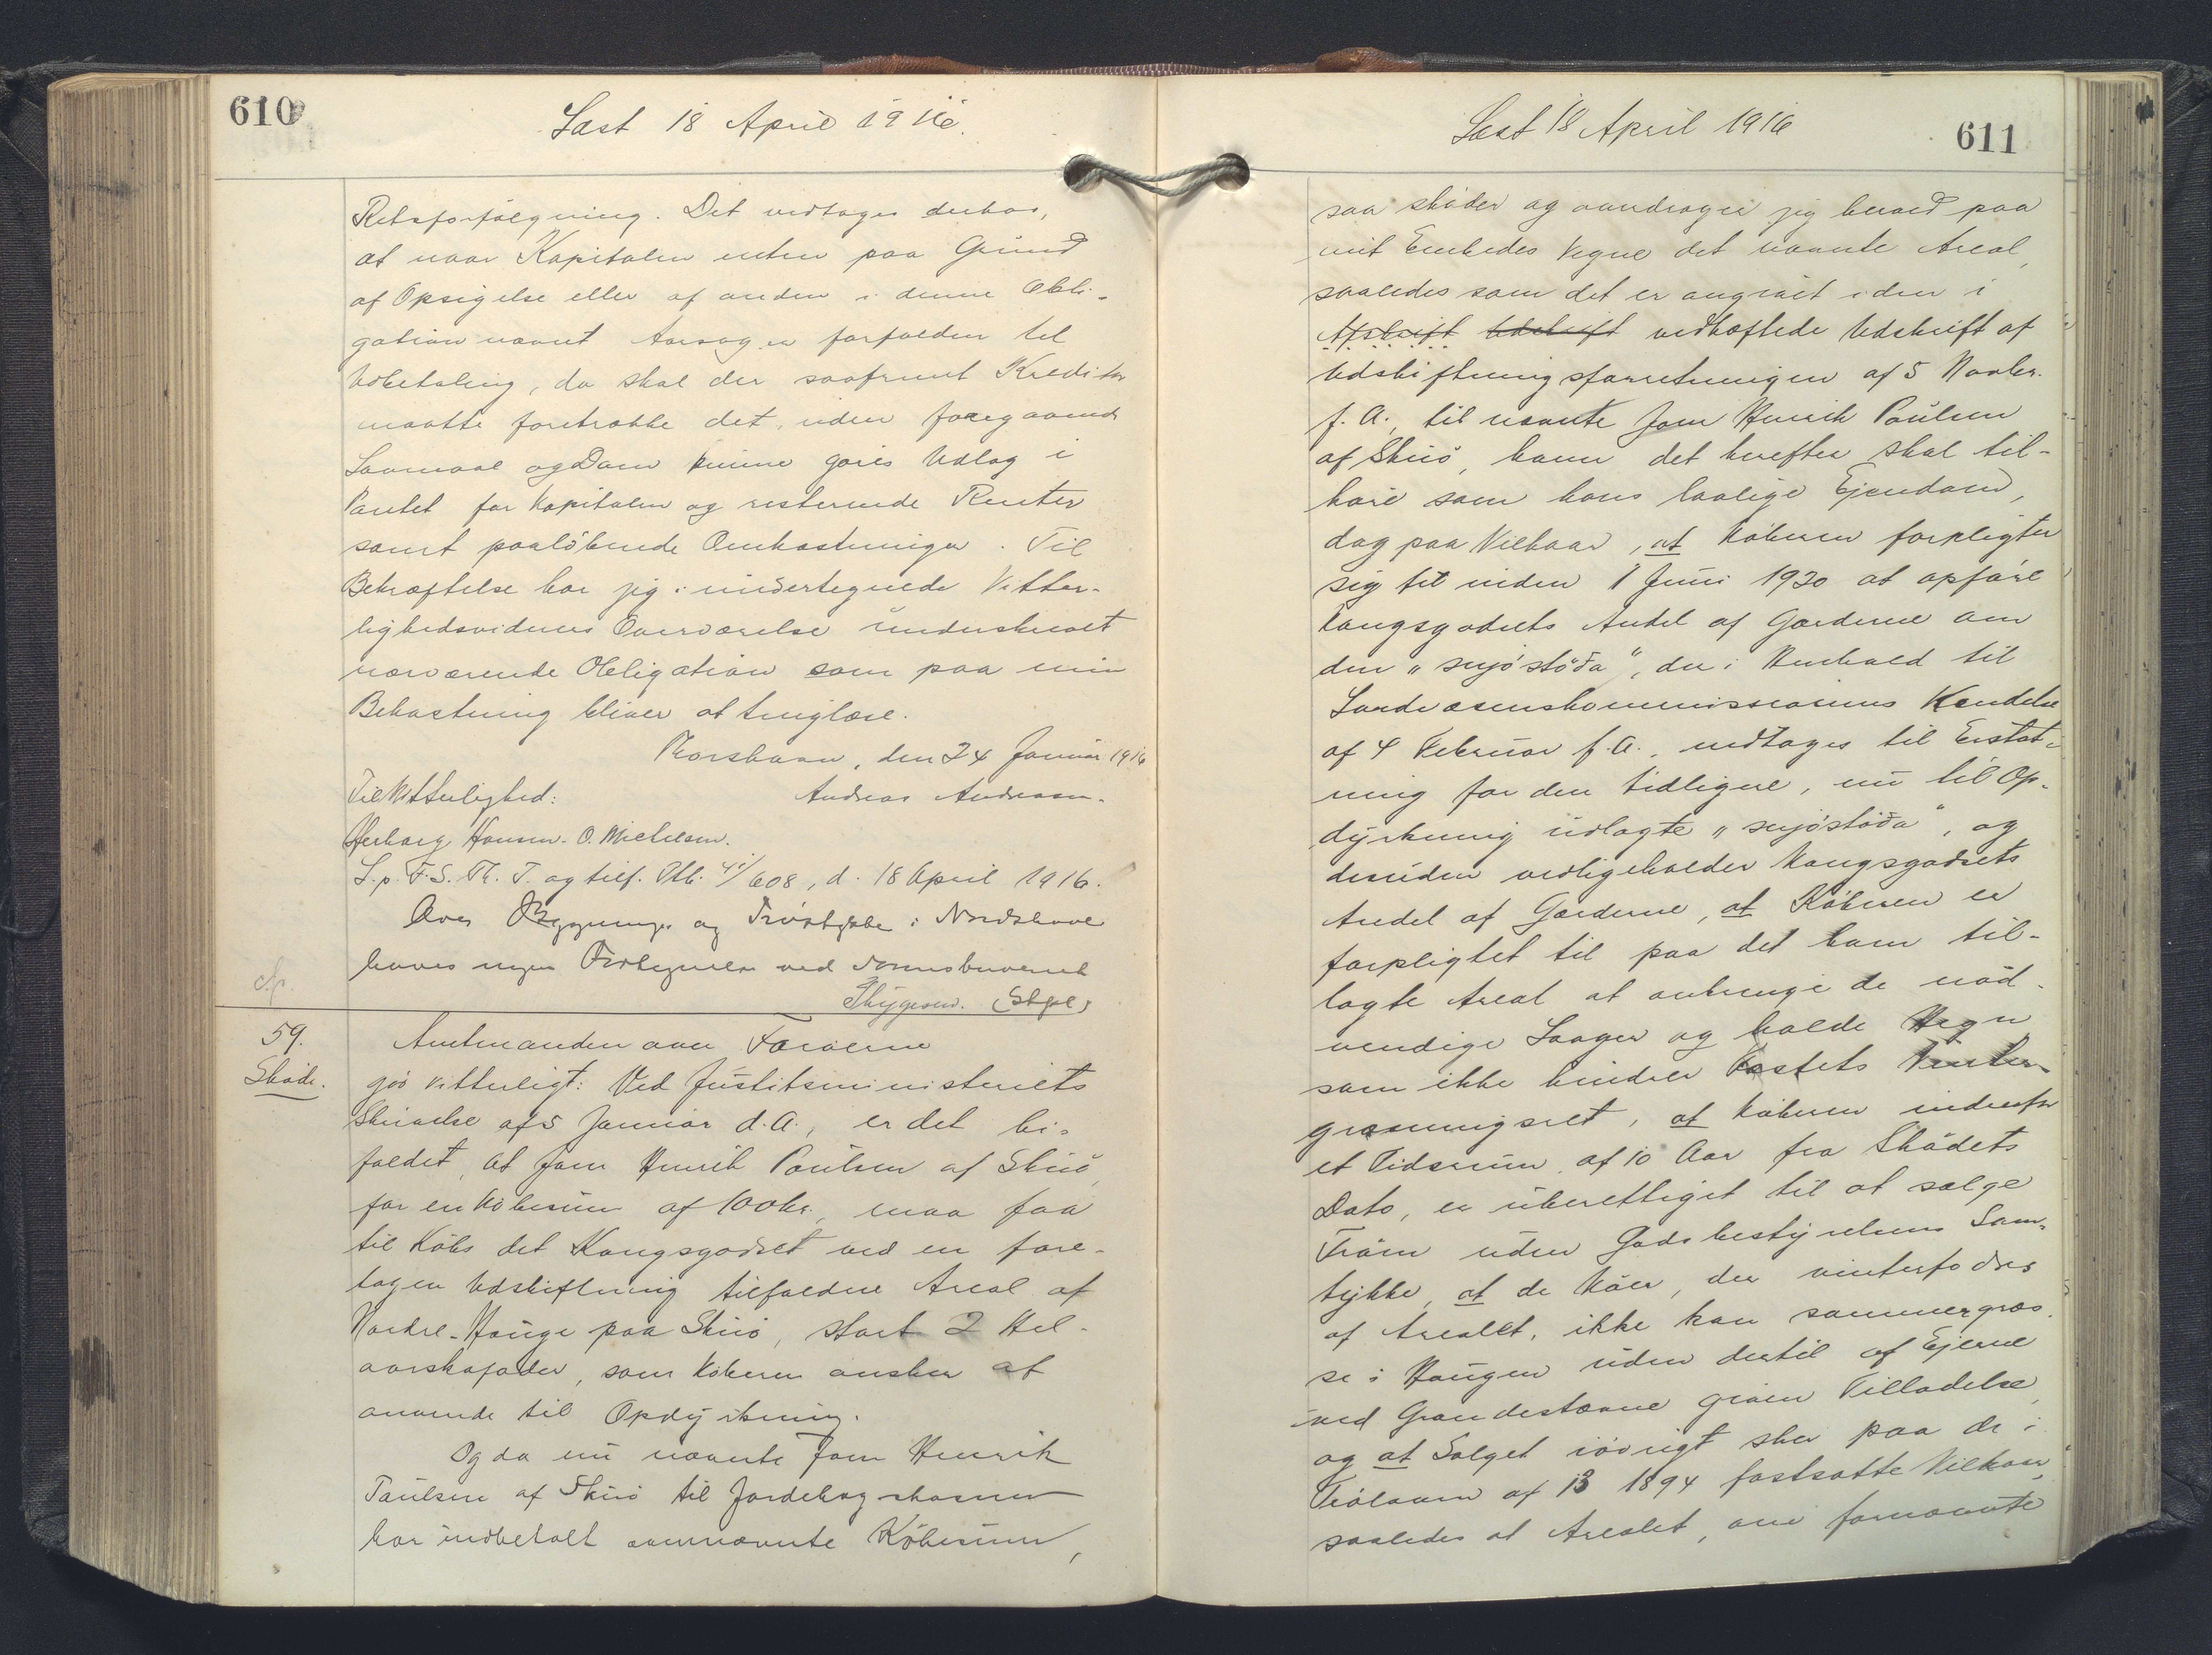 610
Læst 18 April 1916.
Retsforfølgning. Det vedtages derhos,
at naar Kapitalen enten paa Grund
af Opsigelse eller af anden i denne Obli-
gation nævnt Aarsag er forfalden til
Udbetaling, da skal der saafremt Kreditor
maatte foretrække det, uden foregaaende
Lovmaal og Dom kunne gøres Udlæg i
Pantet for Kapitalen og resterende Renter
samt paaløbende Omkostninger. Til
Bekræftelse har jeg i undertegnede Vitter-
lighedsvidners Overværelse underskrevet
nærværende Obligation som paa min
Bekostning bliver at tinglæse.
Thorshavn, den 24 Januar 1916
Til Vitterlighed: Andreas Andreasen.
Herborg Hansen. O. Michelsen.
L. p. F. S. Th. T. og tilf. Ptb. 4/608, d. 18 April 1916.
Over Bygninger og i Nordskove
haves ingen ved
59.
Skøde.
Amtmanden over Færøerne
gør vitterligt: Ved Justitsministeriets
Skrivelse af 5 Januar d.A., er det bi-
faldet, at Jom Henrik Poulsen af Skuø,
for en Købesum af 100 kr., maa faa
til Købs det Kongsgodset ved en fore-
tagen Udskiftning tilfaldne Areal af
Nordre-Hauge paa Skuø, stort 2 Hel-
aarskofoder, som Køberen ønsker at
anvende til Opdyrkning.
Og da nu nævnte Jom Henrik
Poulsen af Skuø til Jordebogskassen
har indbetalt ovennævnte Købesum,
Læst 18 April 1916
611
saa skøder og overdrager jeg herved paa
mit Embedes Vegne det nævnte Areal,
saaledes som det er angivet i den i
Afskrift Udskrift vedhæftede Udskrift af
Udskiftningsforretningen af 5 Novbr.
f. A., til nævnte Jom Henrik Poulsen
af Skuø, hvem det herefter skal til-
høre som hans lovlige Ejendom,
dog paa Vilkaar, at Køberen forpligter
sig til inden 1 Juni 1920 at opføre
Kongsgodsets Andel af Gærderne om
den "snjóstøða", der i Henhold til
Landvæsenskommissionens Kendelse
af 4 Februar f. A., udtages til Erstat-
ning for den tidligere, nu til Op-
dyrkning udlagte "snjóstøða", og
desuden vedligeholder Kongsgodsets
Andel af Gærderne, at Køberen er
forpligtet til paa det ham til-
lagte Areal at anbringe de nød-
vendige Laager og holde Hegn
som ikke hindrer Vinter-
græsningsret, at Køberen indenfor
et Tidsrum af 10 Aar fra Skødets
Dato, er uberettiget til at sælge
Trøen uden Godsbestyrelsens Sam-
tykke, at de Køer, der vinterfodres
af Arealet, ikke kan sommergræs-
se i Haugen uden dertil af Ejerne
ved Grandestævne given Tilladelse,
og at Salget iøvrigt sker paa de i
Trøloven af 13 1894 fastsatte Vilkaar,
saaledes at Arealet, om fornævnte